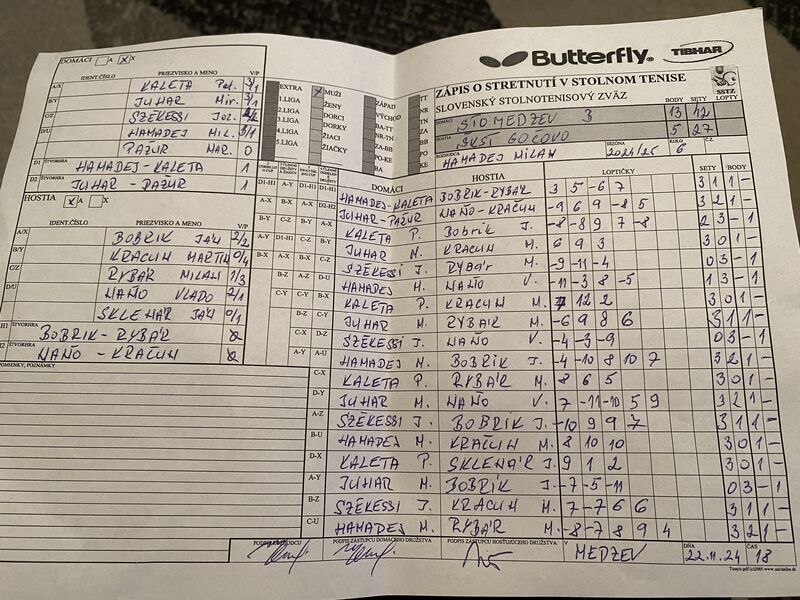 Butterfly
TIBHAR
ZÁPIS O STRETNUTÍ V STOLNOM TENISE
SLOVENSKÝ STOLNOTENISOVÝ ZVÄZ
SSTZ
BODY SETY LOPTY
DOMÁCI STO MEDZEV B 13 42
HOSTIA GOČOVO 5 27
HAMADEJ MILAN SEZÓNA 2024/25 KOLO 6
DOMÁCI A X X
IDENT.ČÍSLO PRIEZVISKO A MENO V/P
A/X KALETA Pet. 3/1
B/Y JUHAR Mir. 3/1
C/Z SZÉKESSI Joz. 2/2
D/U HAMADEJ MIL. 3/1
PAZUR MAR. 0
D1 ŠTVORHRA HAMADEJ - KALETA 1
D2 ŠTVORHRA JUHAR - PAZUR 1
HOSTIA X A X
IDENT.ČÍSLO PRIEZVISKO A MENO V/P
A/X BOBRIK JÁN 2/2
B/Y KRAČUN MARTIN 0/4
C/Z RYBÁR MILAN 1/3
D/U VLADO 2/1
SKLENÁR JÁN 0/1
H1 ŠTVORHRA BOBRIK - RYBÁR 0
H2 ŠTVORHRA - KRAČUN 0
PRIPOMIENKY, POZNÁMKY
EXTRA
1.LIGA
2.LIGA
3.LIGA
4.LIGA
5.LIGA
X MUŽI
ŽENY
DORCI
DORKY
ŽIACI
ŽIAČKY
ZÁPAD
VÝCHOD
DOMÁCI HOSTIA LOPTIČKY SETY BODY
HAMADEJ-KALETA BOBRIK-RYBÁR 3 5 -6 7 3 1 1 -
JUHAR-PAZUR KRAČUN -9 6 9 -8 5 3 2 1 -
KALETA P. Bobrik J. -8 -8 9 7 -8 2 3 - 1
JUHAR M. KRACUN M. 6 9 3 3 0 1 -
SZÉKESSI J. RYBÁR M. -9 -11 -4 0 3 - 1
HAMADEJ M. V. -11 -3 8 -5 1 3 - 1
KALETA P. KRACUN M. 7 12 2 3 0 1 -
JUHAR M. RYBÁR M. -6 9 8 6 3 1 1 -
SZÉKESSI J. V. -4 -3 -9 0 3 - 1
HAMADEJ M. BOBRÍK J. -4 -10 8 10 7 3 2 1 -
C-X KALETA P. RYBÁR M. 8 6 5 3 0 1 -
D-Y JUHAR M. V. 7 -11 -10 5 9 3 2 1 -
A-Z SZÉKESSI J. BOBRÍK J. -10 9 9 7 3 1 1 -
B-U HAMADEJ M. KRAČUN M. 8 10 10 3 0 1 -
D-X KALETA P. SKLENÁR J. 9 1 2 3 0 1 -
A-Y JUHAR M. BOBRÍK J. -7 -5 -11 0 3 - 1
B-Z SZÉKESSI J. KRACUN M. 7 -7 6 6 3 1 1 -
C-U HAMADEJ M. RYBÁR M. -8 -7 8 9 4 3 2 1 -
PODPIS ZÁSTUPCU DOMÁCEHO DRUŽSTVA
PODPIS ZÁSTUPCU HOSŤUJÚCEHO DRUŽSTVA
V MEDZEV DŇA 22.11.24 ČAS 18